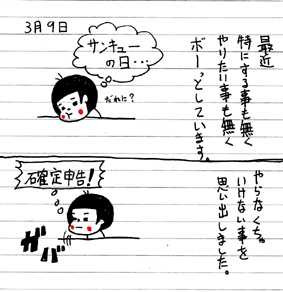 3月9日
最近
特にする事も無く
やりたい事も無く
ボーっとしています。
サンキュー
の日…
だれに?
やらなくちゃ
いけない事を
思い出しました。
確定申告!
ガバ